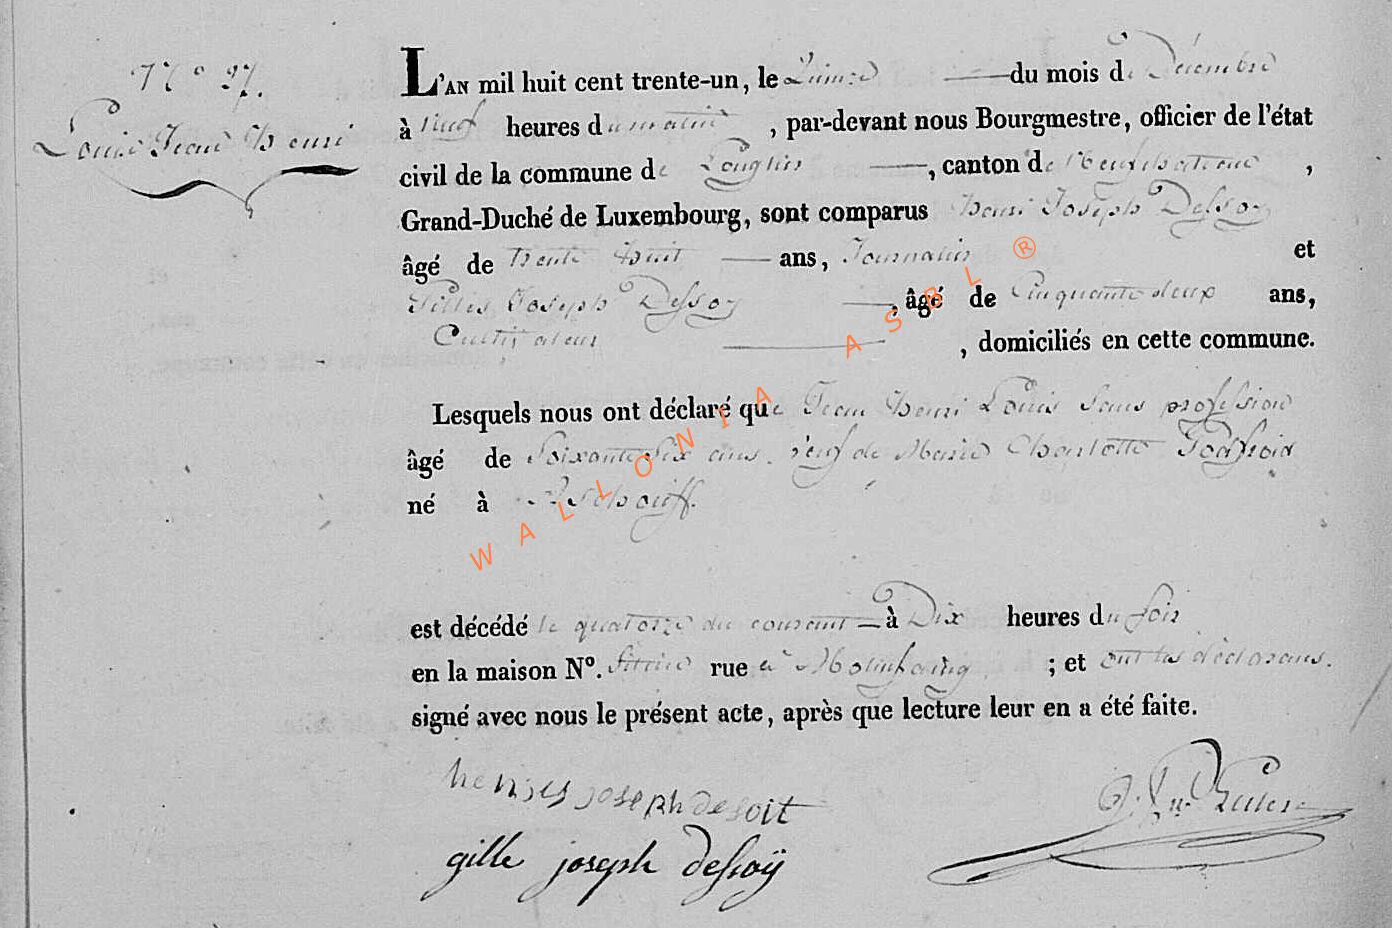 N° 27.
Louis Jean Henri
L'AN mil huit cent trente-un, le Quinze du mois de Décembre
à Neuf heures du matin, par-devant nous Bourgmestre, officier de l'état
civil de la commune de Longlier, canton de Neufchateau,
Grand-Duché de Luxembourg, sont comparus Henri Joseph Dessoy
âgé de trente huit ans, Journalier et
Gilles Joseph Dessoy, âgé de Cinquante deux ans,
Cultivateur, domiciliés en cette commune.
Lesquels nous ont déclaré que Jean Henri Louis sans profession
âgé de Soixante Six ans. veuf de Marie Charlotte
né à
est décédé le quatorze du courant à Dix heures du soir
en la maison N°. rue à Molinfaing; et ont les déclarans.
signé avec nous le présent acte, après que lecture leur en a été faite.
henries joseph desoit
gille joseph dessoÿ
WALLONIA ASBL ®